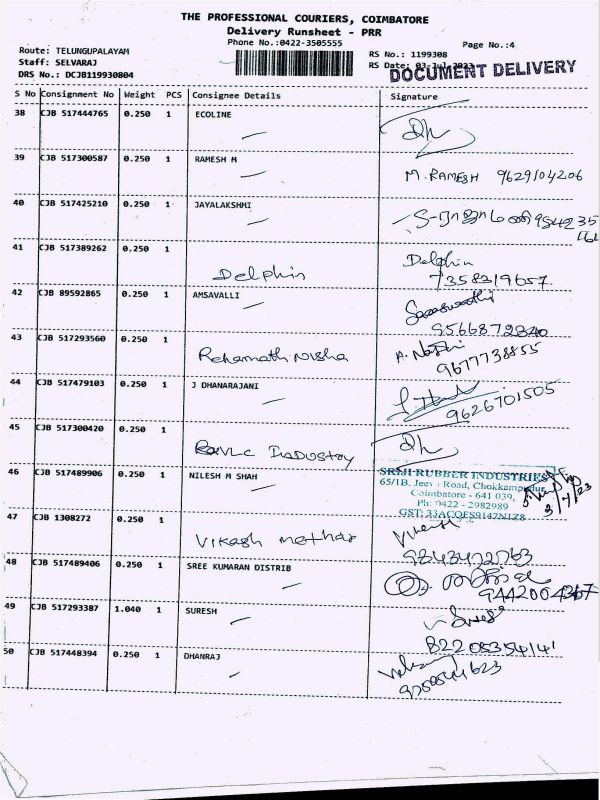 THE PROFESSIONAL COURIERS, COIMBATORE
Delivery Runsheet - PRR
Phone No.:0422-3505555
Page No.:4
Route: TELUNGUPALAYAM
RS No.: 1199308
Staff: SELVARAJ
RS Date: 03-Jul-2023
DRS No.: DCJB119930804
DOCUMENT DELIVERY
S No Consignment No Weight PCS Consignee Details Signature
38 CJB 517444765 0.250 1 ECOLINE
39 CJB 517300587 0.250 1 RAMESH M
M. RAMESH 9629104206
40 CJB 517425210 0.250 1 JAYALAKSHMI
41 CJB 517389262 0.250 1
Delphin Delphin
7358319657
42 CJB 89592865 0.250 1 AMSAVALLI
Saraswathi
9566872840
43 CJB 517293560 0.250 1
Rehamath Nisha
9677738855
44 CJB 517479103 0.250 1 J DHANARAJANI
9626701505
45 CJB 517300420 0.250 1
INDUSTRY
46 CJB 517489906 0.250 1 NILESH M SHAH
SRIJI RUBBER INDUSTRIES
65/1B, Jeeva Road, Chokkampudur,
Coimbatore - 641 039,
Ph: 0422 - 2982989
GST: 33ACQFS9147N1Z8
3/7/23
47 CJB 1308272 0.250 1
Vikash
48 CJB 517489406 0.250 1 SREE KUMARAN DISTRIB
9442004367
49 CJB 517293387 1.040 1 SURESH
50 CJB 517448394 0.250 1 DHANRAJ